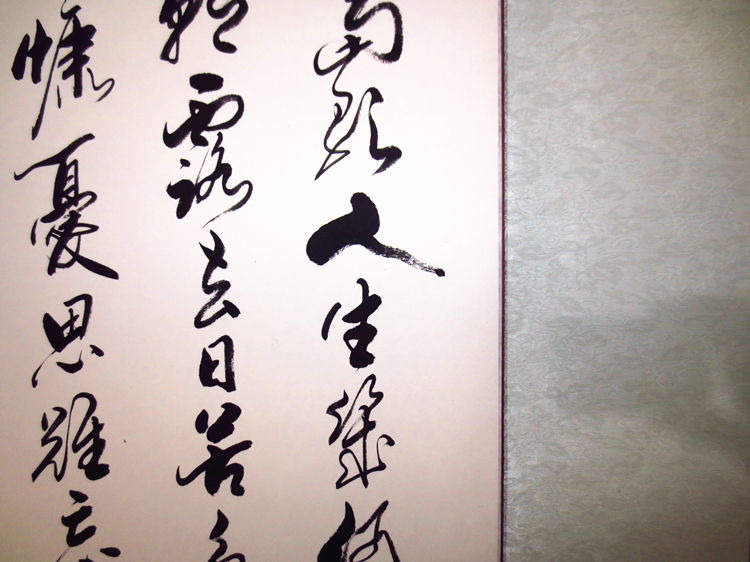 當歌人生幾何
朝露去日苦多
慷憂思難忘